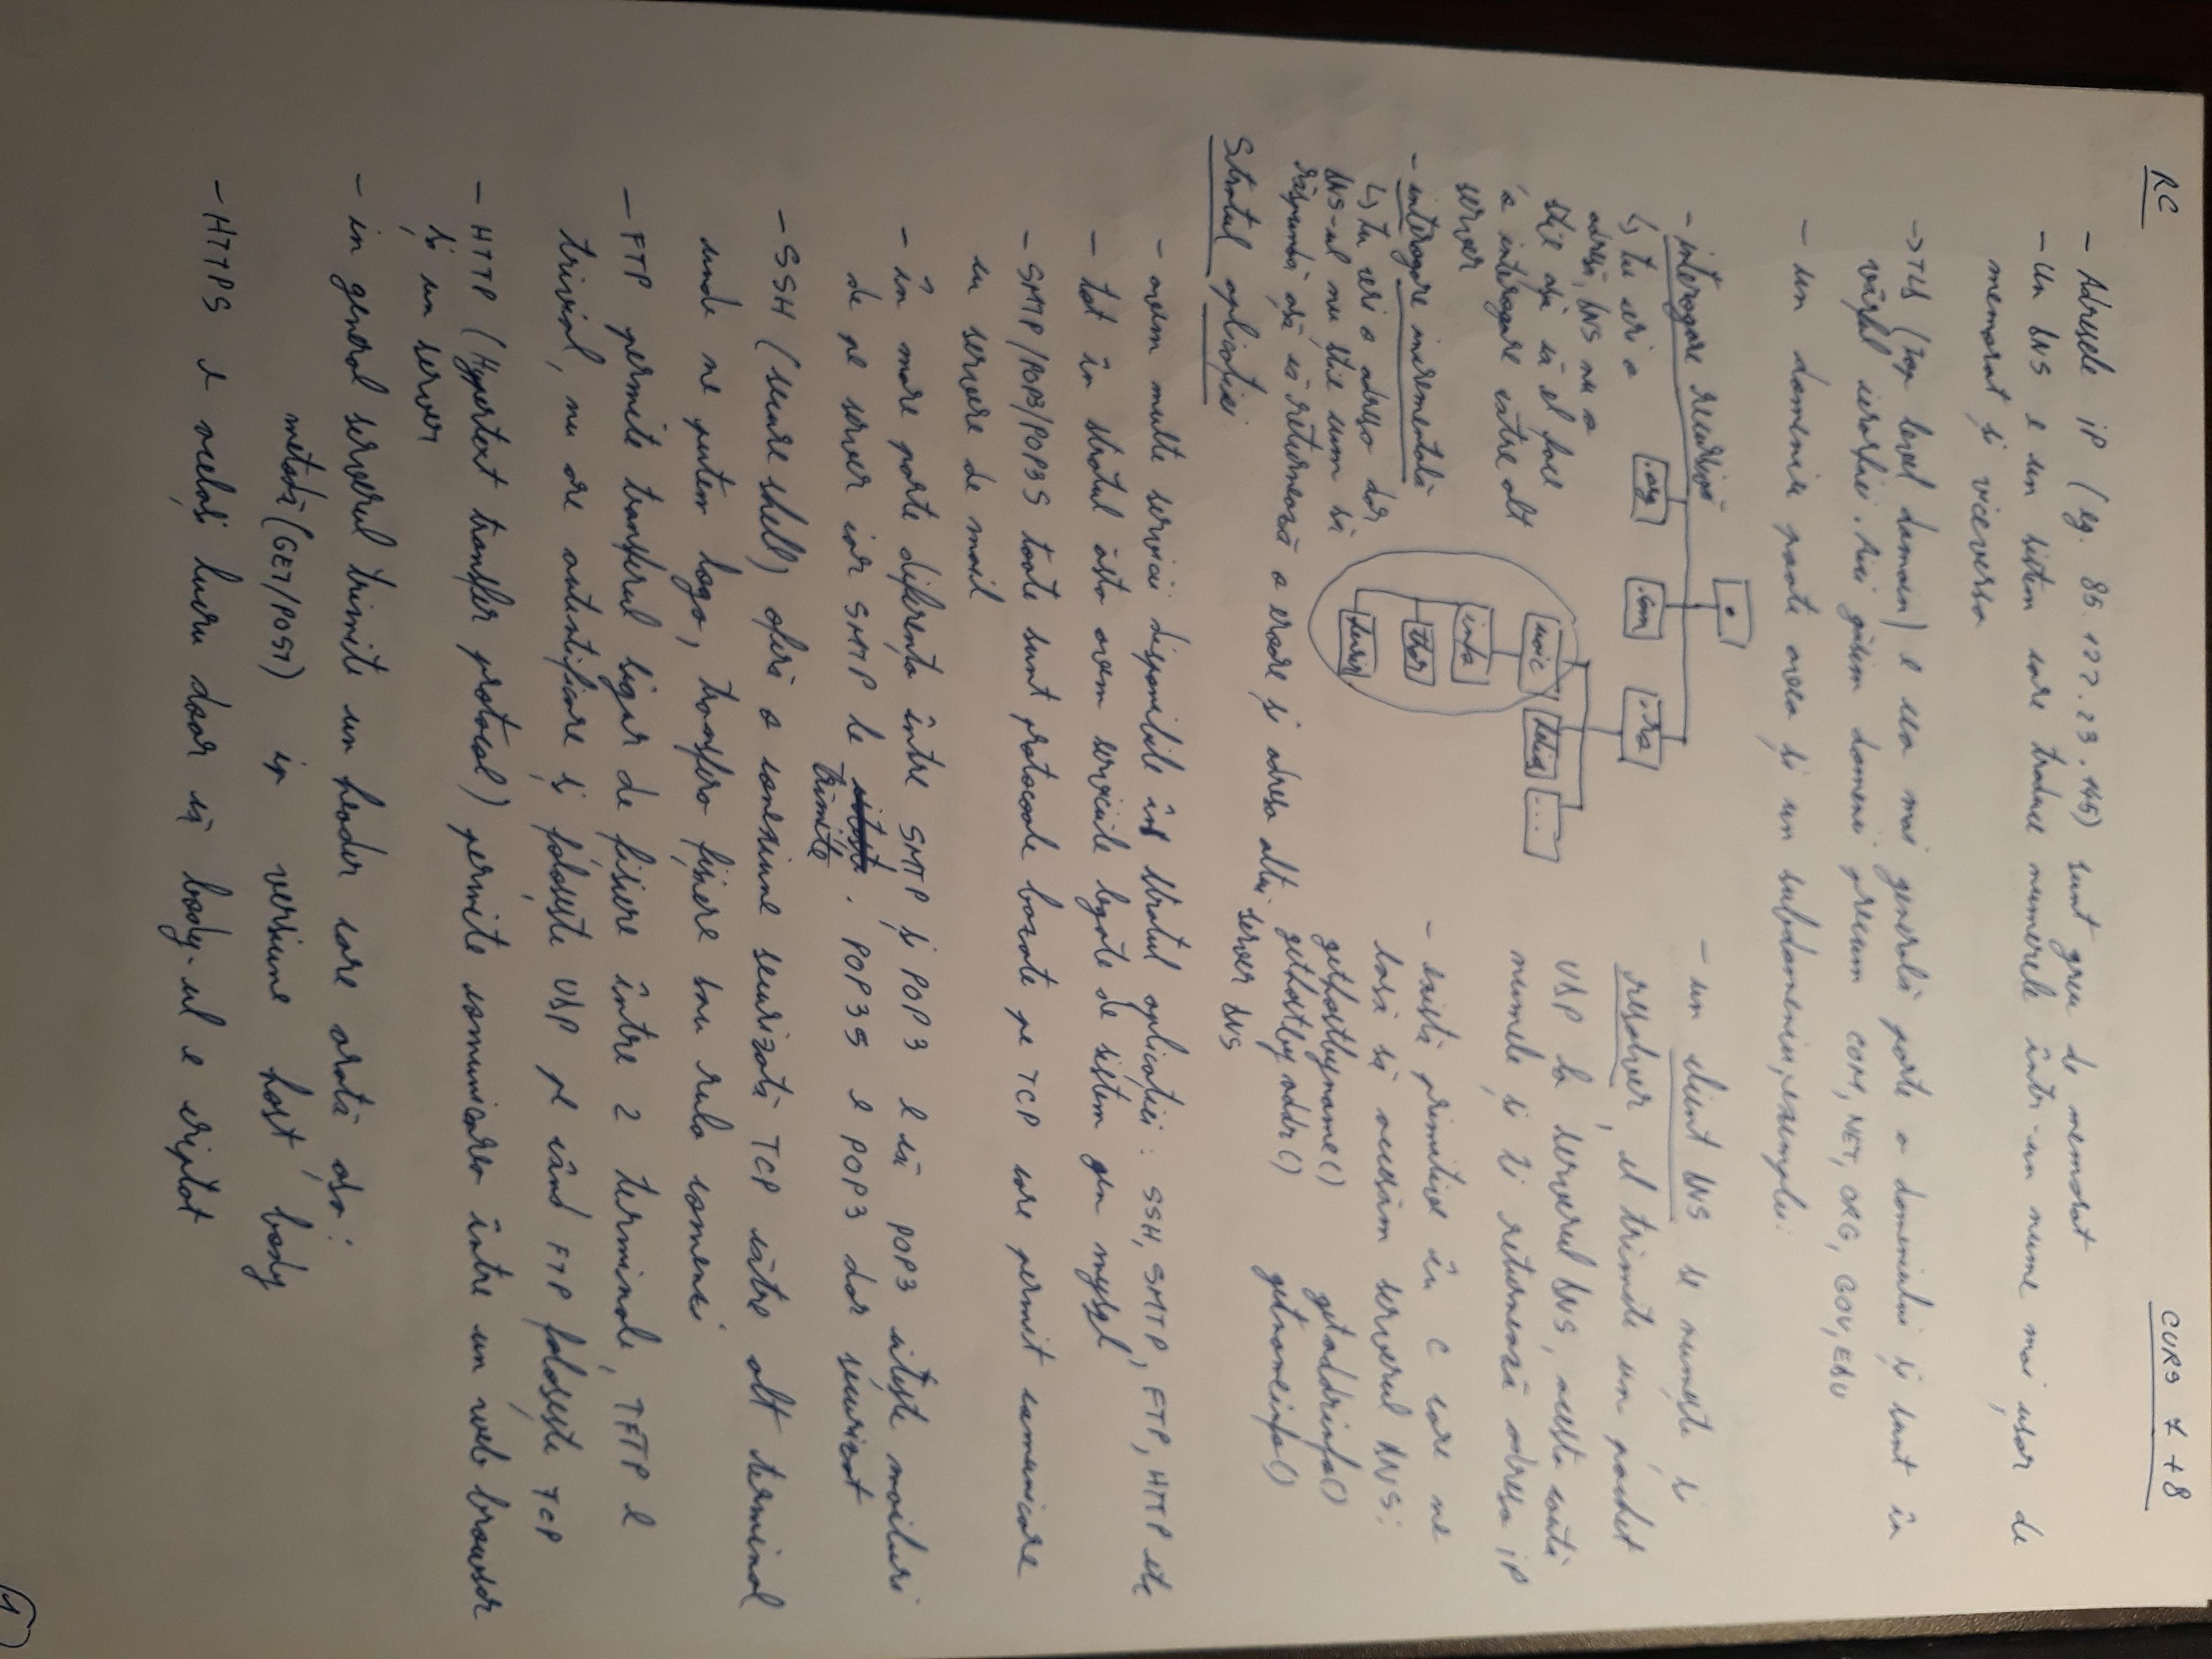 RC
CURS 7 + 8
- Adresele iP (eg. 85.122.23.145) sunt greu de memorat
- Un DNS e un sistem care traduce numerele într-un nume mai ușor de
memorat și viceversa
-> TLD (Top level domain) e cea mai generală parte a domeniului și sunt în
vârful ierarhiei. Aici găsim domenii precum COM, NET, ORG, GOV, EDU
- un domeniu poate avea și un subdomeniu, exemplu:
.
.org .com .ro
uaic ...
info
thor
- interogare recursivă
↳ tu ceri o
adresă, DNS nu o
știe așa că el face
o interogare către alt
server
- interogare incrementală
↳ tu ceri o adresa dar
DNS-ul nu știe cum să
răspundă așă că returnează o eroare și adresa altui server DNS
- un client DNS se numește și
resolver, el trimite un pachet
UDP la serverul DNS, acesta caută
numele și îi returnează adresa iP
- există primitive în C care ne
lasă să accesăm serverul DNS:
gethostbyname() getaddrinfo()
gethostbyaddr() getnameinfo()
Stratul aplicației
- avem multe servicii disponibile în stratul aplicației: SSH, SMTP, FTP, HTTP etc
- tot în stratul ăsta avem serviciile legate de sistem gen mysql
- SMTP/POP3/POP3S toate sunt protocoale bazate pe TCP care permit comunicare
cu servere de mail
- în mare parte diferența între SMTP și POP3 e că POP3 citește mailuri
de pe server iar SMTP le citește. POP3S e POP3 dar securizat
trimite
- SSH (secure shell) oferă o conexiune securizată TCP către alt terminal
unde ne putem loga, transfera fișiere sau rula comenzi
- FTP permite transferul sigur de fișiere între 2 terminale, TFTP e
trivial, nu are autentificare și folosește UDP pe când FTP folosește TCP
- HTTP (Hypertext transfer protocol) permite comunicarea între un web browser
și un server
- in general serverul trimite un header care arată așa:
metodă (GET/POST) ip versiune host body
- HTTPS e același lucru doar că body-ul e criptat
1